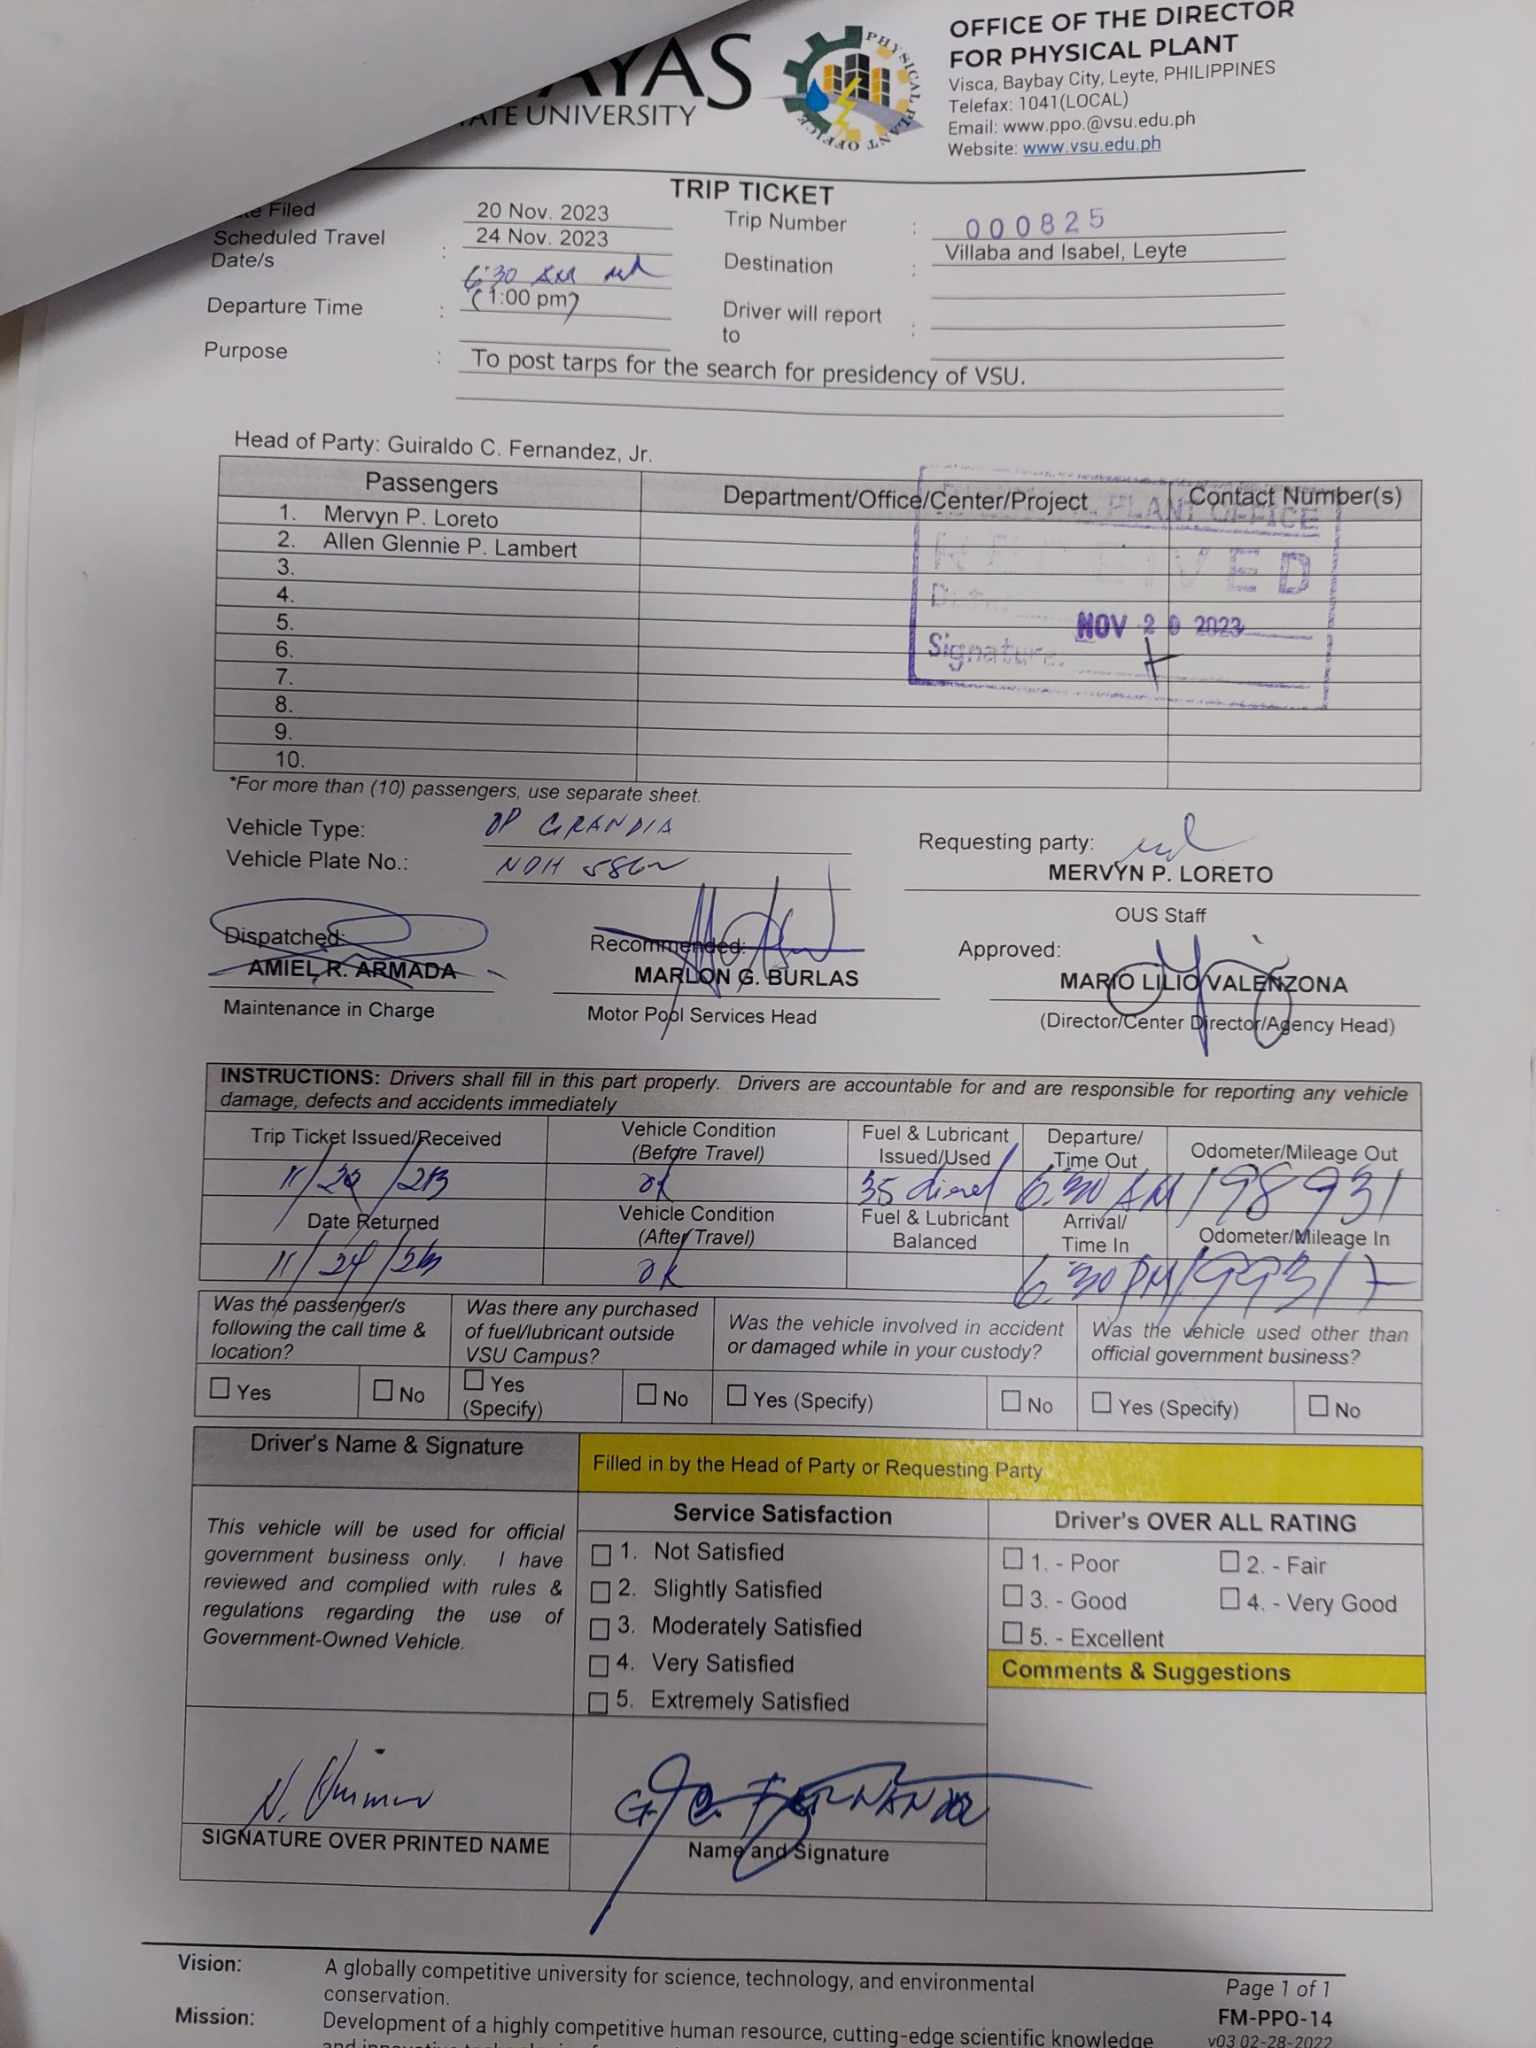 OFFICE OF THE DIRECTOR
FOR PHYSICAL PLANT
Visca, Baybay City, Leyte, PHILIPPINES
Telefax: 1041(LOCAL)
Email: www.ppo.@vsu.edu.ph
Website: www.vsu.edu.ph
AYAS
ATE UNIVERSITY
PHYSICAL PLANT OFFICE
TRIP TICKET
Filed 20 Nov. 2023 Trip Number : 000825
Scheduled Travel Date/s : 24 Nov. 2023 Destination : Villaba and Isabel, Leyte
6:30 AM
Departure Time : (1:00 pm) Driver will report to :
Purpose : To post tarps for the search for presidency of VSU.
Head of Party: Guiraldo C. Fernandez, Jr.
Passengers Department/Office/Center/Project Contact Number(s)
1. Mervyn P. Loreto
2. Allen Glennie P. Lambert
3.
4.
5.
6.
7.
8.
9.
10.
PLANT OFFICE
RECEIVED
Date:
NOV 20 2023
Signature:
*For more than (10) passengers, use separate sheet.
Vehicle Type: OP GRANDIA
Vehicle Plate No.:
Requesting party:
MERVYN P. LORETO
OUS Staff
Dispatched: Recommended: Approved:
AMIEL R. ARMADA MARLON G. BURLAS MARIO LILIO VALENZONA
Maintenance in Charge Motor Pool Services Head (Director/Center Director/Agency Head)
INSTRUCTIONS: Drivers shall fill in this part properly. Drivers are accountable for and are responsible for reporting any vehicle
damage, defects and accidents immediately
Trip Ticket Issued/Received Vehicle Condition (Before Travel) Fuel & Lubricant Issued/Used Departure/ Time Out Odometer/Mileage Out
ok 35 diesel 6:30 AM 198931
Date Returned Vehicle Condition (After Travel) Fuel & Lubricant Balanced Arrival/ Time In Odometer/Mileage In
11/24/23 ok 6:30 PM
Was the passenger/s following the call time & location?
Was there any purchased of fuel/lubricant outside VSU Campus?
Was the vehicle involved in accident or damaged while in your custody?
Was the vehicle used other than official government business?
Yes No Yes (Specify) No Yes (Specify) No Yes (Specify) No
Driver's Name & Signature
Filled in by the Head of Party or Requesting Party
Service Satisfaction Driver's OVER ALL RATING
This vehicle will be used for official
government business only. I have
reviewed and complied with rules &
regulations regarding the use of
Government-Owned Vehicle.
1. Not Satisfied
2. Slightly Satisfied
3. Moderately Satisfied
4. Very Satisfied
5. Extremely Satisfied
1. - Poor 2. - Fair
3. - Good 4. - Very Good
5. - Excellent
Comments & Suggestions
G. C. FERNANDEZ
SIGNATURE OVER PRINTED NAME Name and Signature
Vision: A globally competitive university for science, technology, and environmental
conservation.
Mission: Development of a highly competitive human resource, cutting-edge scientific knowledge
Page 1 of 1
FM-PPO-14
v03 02-28-2022